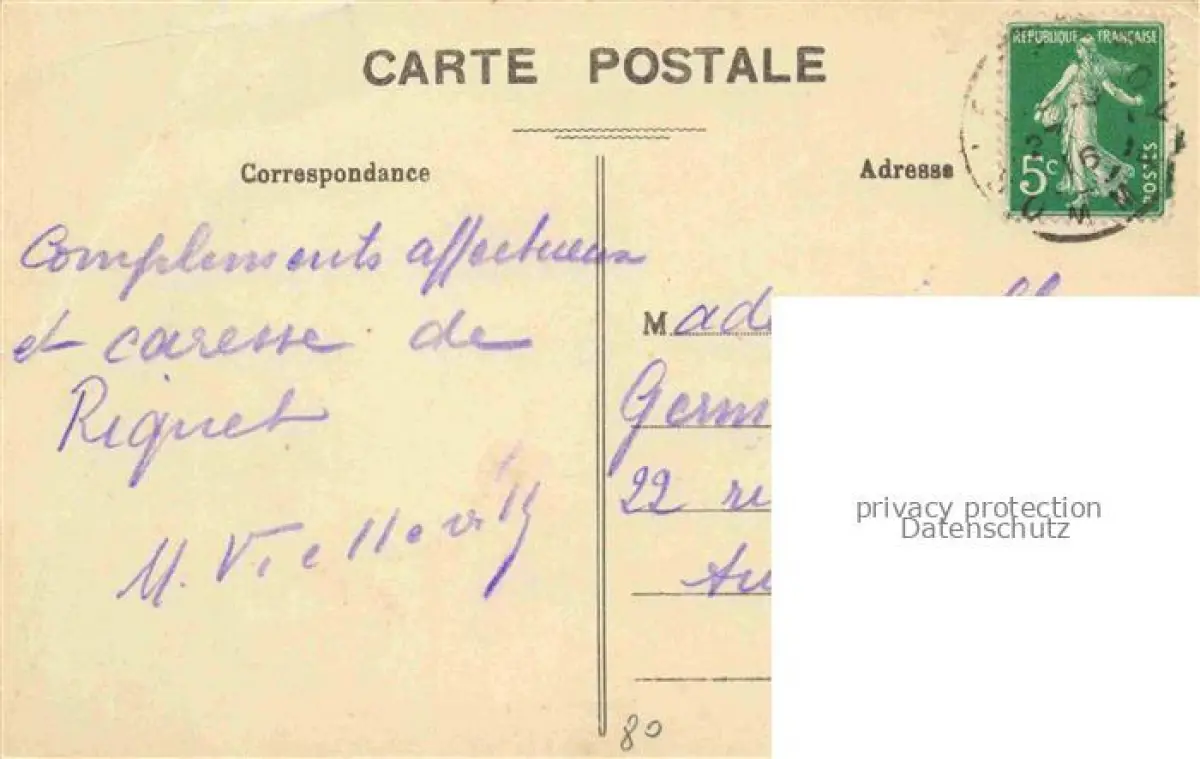 CARTE POSTALE
Correspondance
Adresse
REPUBLIQUE FRANÇAISE
5c
POSTES
Compliments affectueux
et caresse de
Riquet
M.
M
22
privacy protection
Datenschutz
80